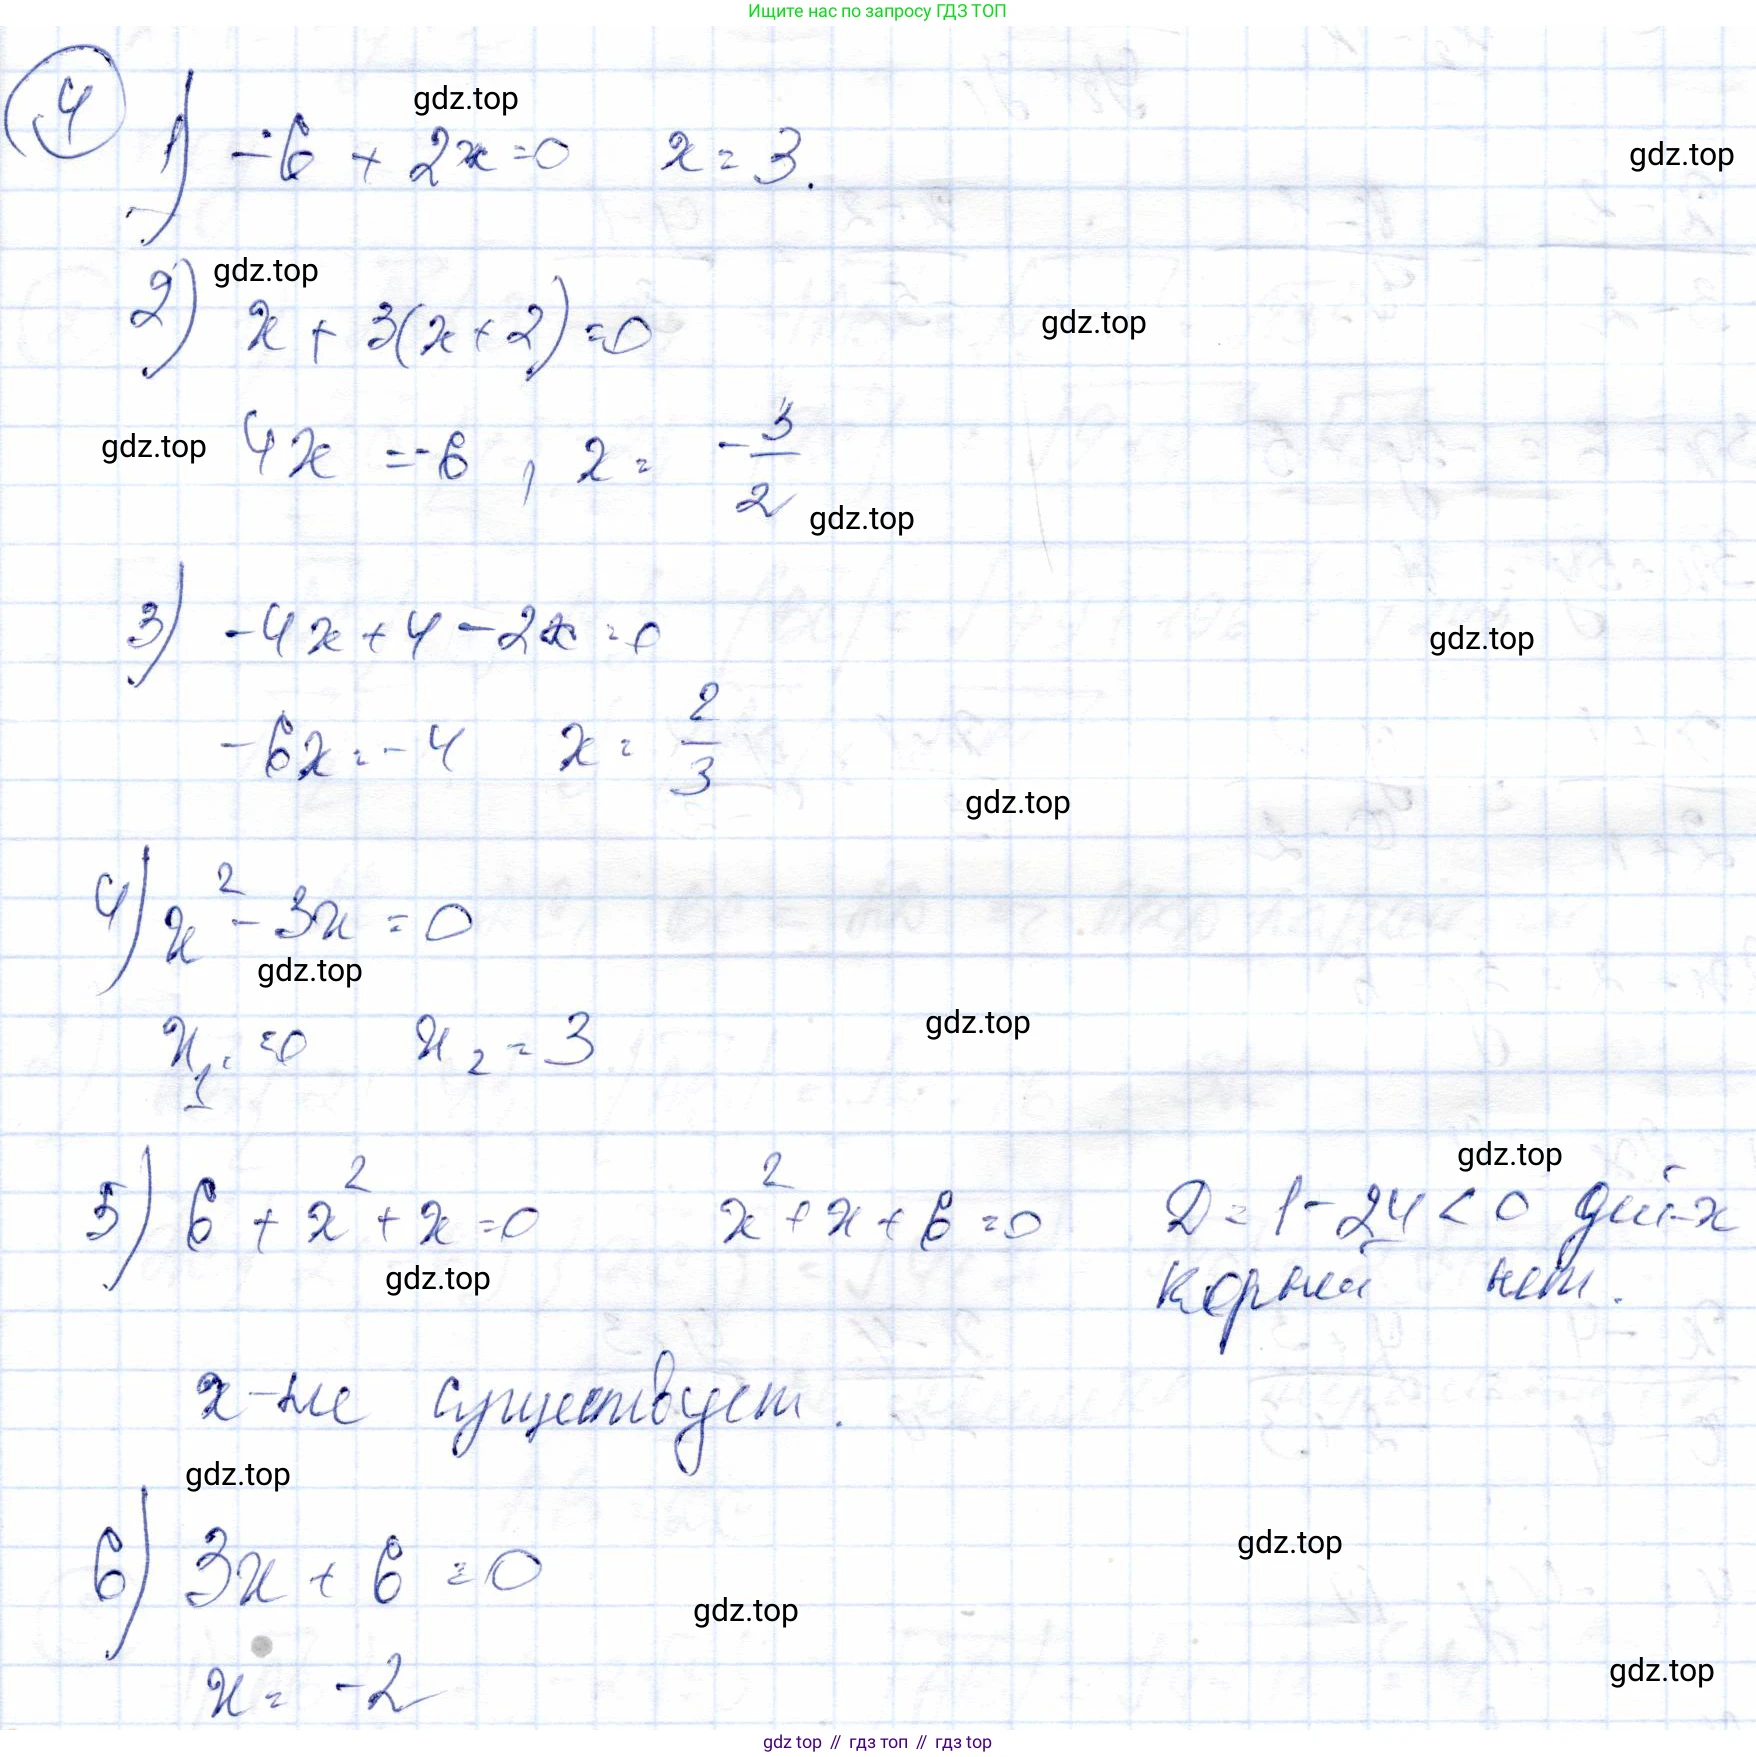 Ищите нас по запросу ГДЗ ТОП
4
gdz.top
1) -6 + 2x = 0 x = 3.
gdz.top
gdz.top
2) x + 3(x + 2) = 0
gdz.top
gdz.top 4x = -6, x = -3/2
gdz.top
3) -4x + 4 - 2x = 0
gdz.top
-6x = -4 x = 2/3
gdz.top
4) x² - 3x = 0
gdz.top
x₁ = 0 x₂ = 3
gdz.top
gdz.top
5) 6 + x² + x = 0 x² + x + 6 = 0 D = 1 - 24 < 0 дей-х
gdz.top
корней нет.
x - не существует.
gdz.top
6) 3x + 6 = 0
gdz.top
gdz.top
x = -2
gdz.top
gdz top // гдз топ // гдз top